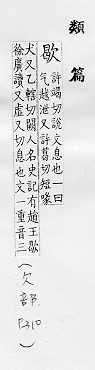 類篇
歇
許竭切說文息也一曰
气越泄又許葛切短喙
犬又乙轄切闕人名史記有趙王歇
徐廣讀又虛乂切息也文一重音三
(欠部
)